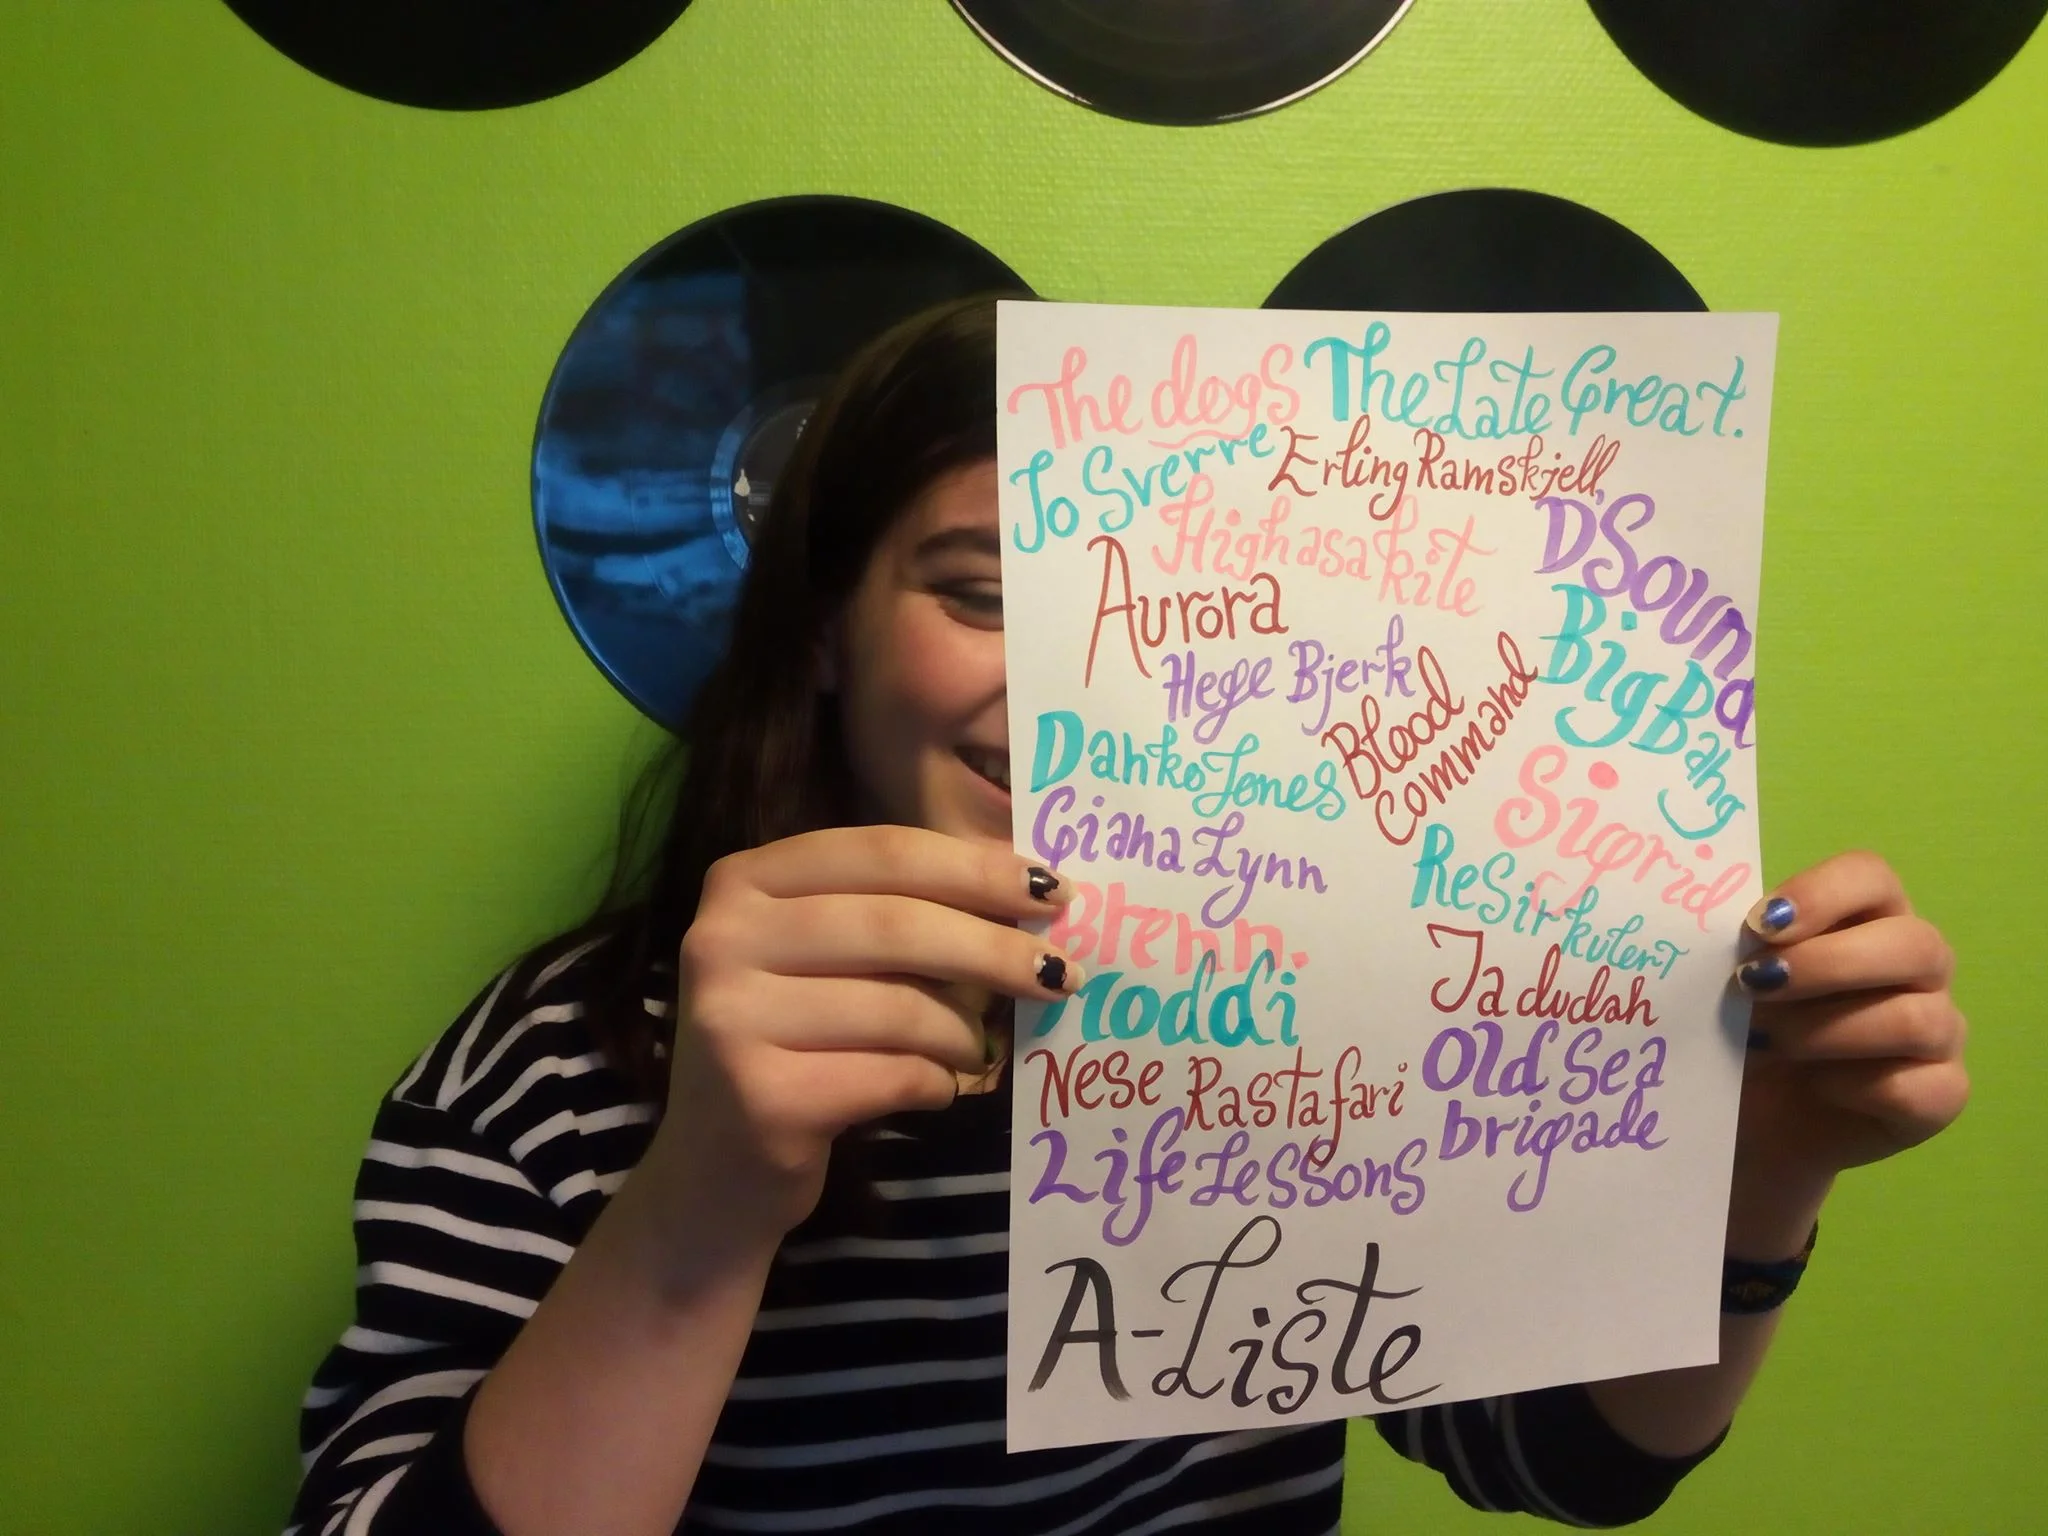 The dogs
The Late Great.
Jo Sverre
Erling Ramskjell
High asa kite
D'Sound
Aurora
Big Bang
Hege Bjerk
Blood
Command
Danko Jones
Sigrid
Giana Lynn
ReSirkulert
Brenn.
Ja dudah
Moddi
Nese Rastafari
Old Sea
brigade
Life Lessons
A-Liste